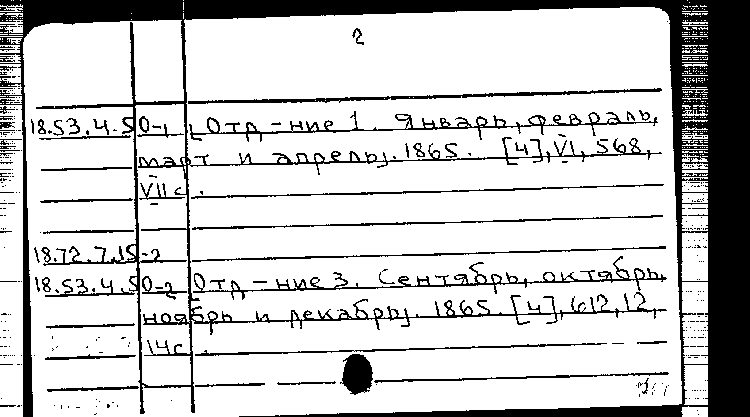 2
18.53.4.50-1 [Отд-ние 1. Январь, февраль,
март и апрель]. 1865. [4], VI, 568,
VII с.
18.72.7.15-2
18.53.4.50-2 [Отд-ние 3. Сентябрь, октябрь,
ноябрь и декабрь]. 1865. [4], 612, 12,
14 с.